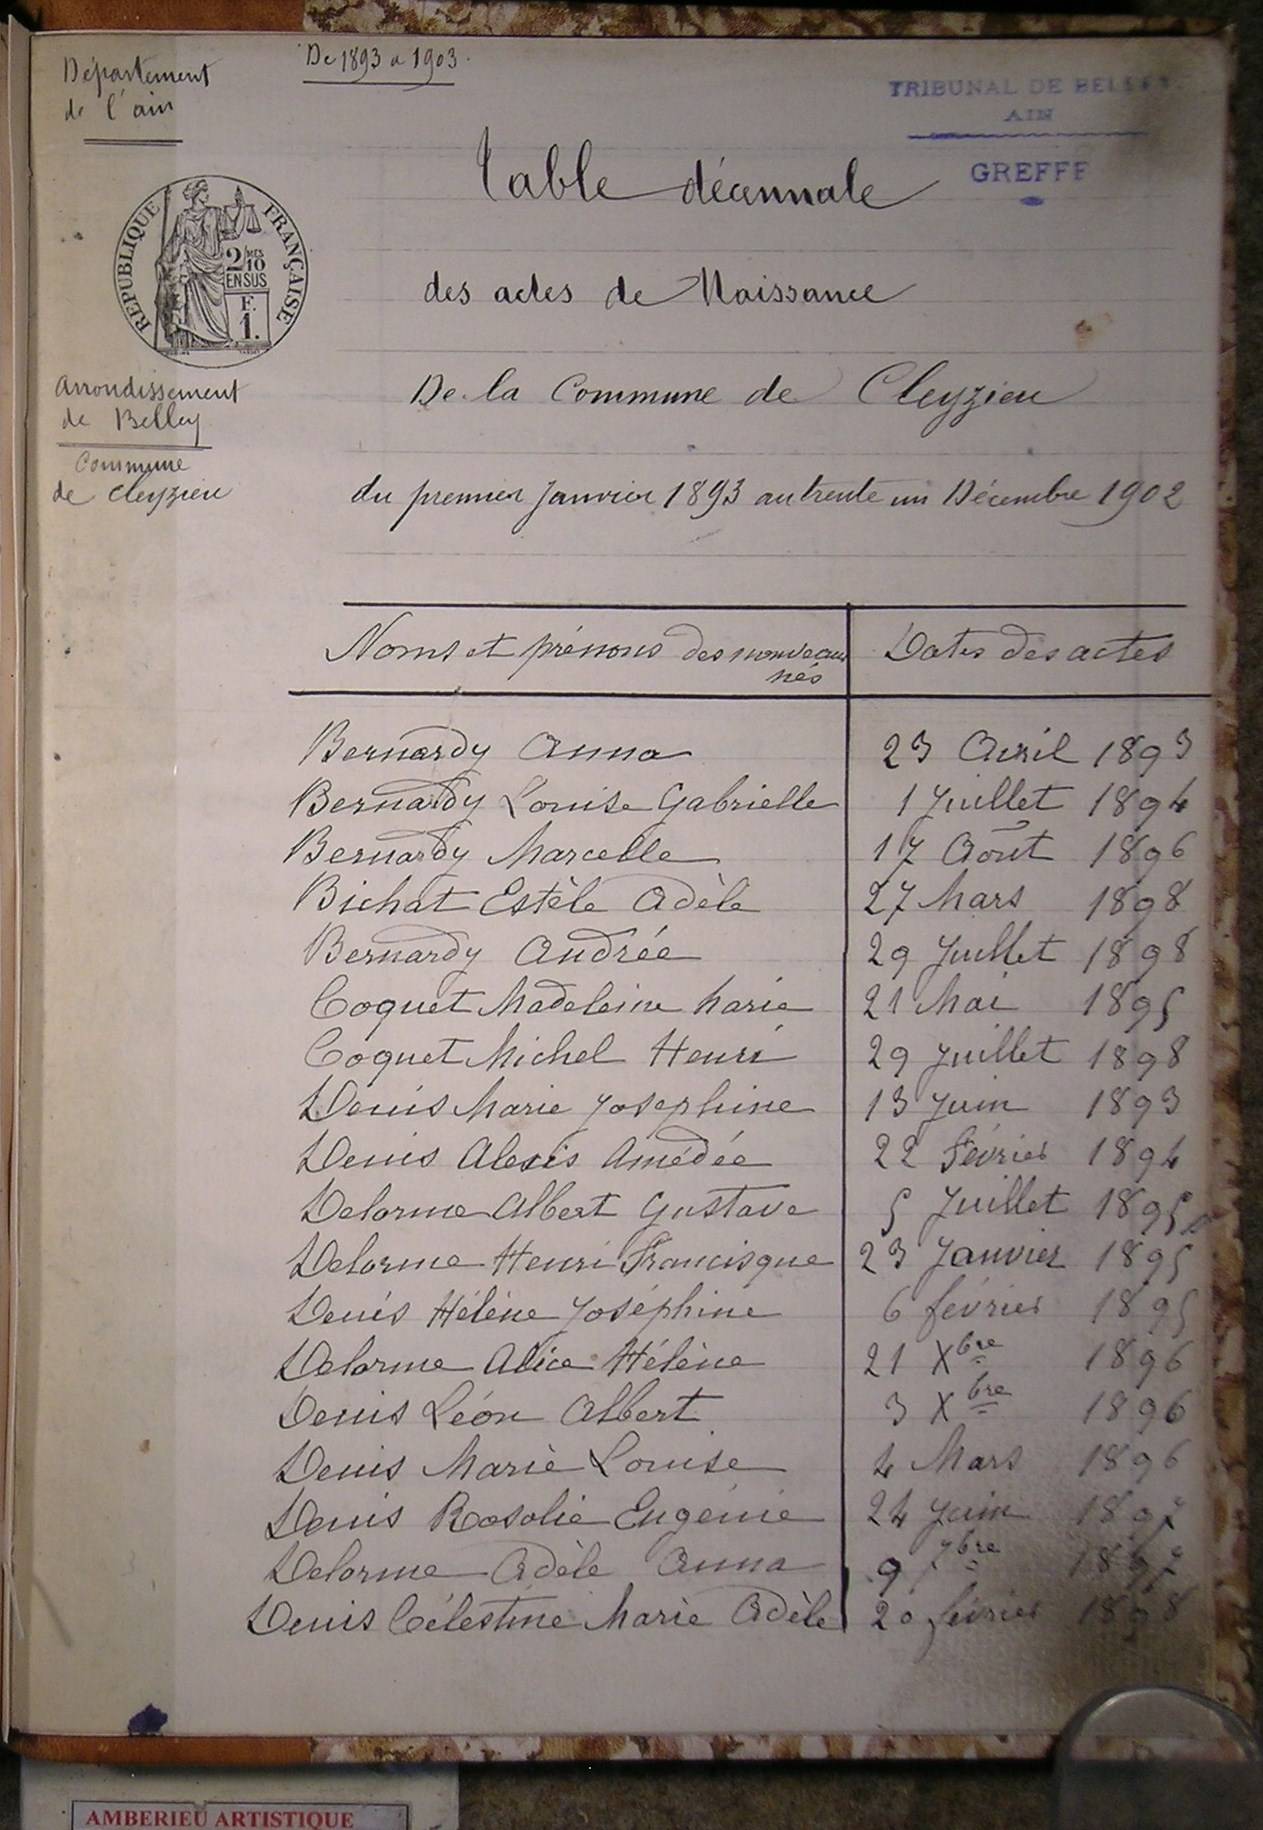 De 1893 a 1903.
Département
de l'ain
TRIBUNAL DE BELLEY
AIN
GREFFE
Table décennale
RÉPUBLIQUE FRANÇAISE
2/10 MES
EN SUS
F.
1.
des actes de Naissance
Arrondissement
de Belley
De la Commune de Cleyzieu
Commune
de Cleyzieu
du premier Janvier 1893 au trente un Décembre 1902
Noms et prénoms des nouveaux nés | Dates des actes
Bernardy Anna 23 Avril 1893
Bernardy Louise Gabrielle 1 Juillet 1894
Bernardy Marcelle 17 Août 1896
Bichat Estèle Adèle 27 Mars 1898
Bernardy Andrée 29 Juillet 1898
Coquet Madeleine Marie 21 Mai 1895
Coquet Michel Henri 29 Juillet 1898
Denis Marie Josephine 13 Juin 1893
Denis Alexis Amédée 22 Février 1894
Delorme Albert Gustave 5 Juillet 1895
Delorme Henri Francisque 23 Janvier 1895
Denis Hélène Joséphine 6 février 1895
Delorme Alice Hélène 21 Xbre 1896
Denis Léon Albert 3 Xbre 1896
Denis Marie Louise 4 Mars 1896
Denis Rosalie Eugénie 24 Juin 1897
Delorme Adèle Anna 9 7bre 1897
Denis Célestine Marie Adèle 20 février 1898
AMBERIEU ARTISTIQUE